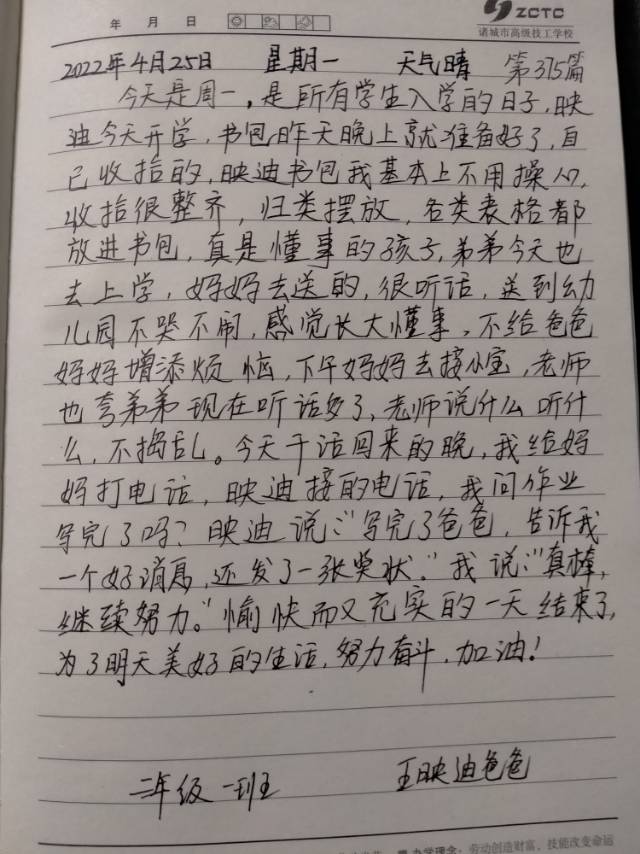 年 月 日
ZCTC
诸城市高级技工学校
2022年4月25日 星期一 天气晴 第375篇
今天是周一,是所有学生入学的日子,映
迪今天开学,书包昨天晚上就准备好了,自
已收拾的,映迪书包我基本上不用操心,
收拾很整齐,归类摆放,各类表格都
放进书包,真是懂事的孩子,弟弟今天也
去上学,妈妈去送的,很听话,送到幼
儿园不哭不闹,感觉长大懂事,不给爸爸
妈妈增添烦恼,下午妈妈去接小宝,老师
也夸弟弟现在听话多了,老师说什么听什
么,不捣乱。今天干活回来的晚,我给妈
妈打电话,映迪接的电话,我问作业
写完了吗?映迪说:“写完了爸爸,告诉我
一个好消息,还发了一张奖状.”我说:“真棒,
继续努力。”愉快而又充实的一天结束了,
为了明天美好的生活,努力奋斗,加油!
二年级一班 王映迪爸爸
办学理念:劳动创造财富,技能改变命运